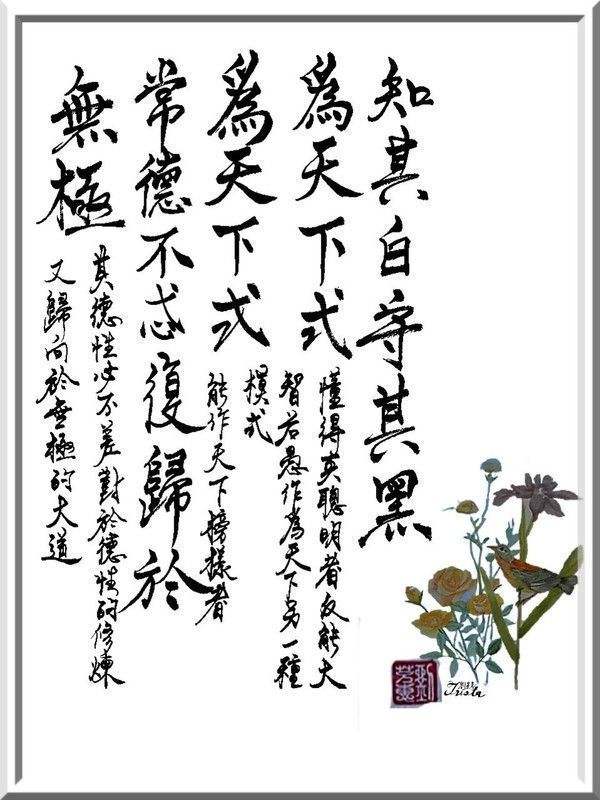 知其白守其黑
為天下式
懂得其聰明者反能大
智若愚作為天下另一種
模式
為天下式
能作天下榜樣者
常德不忒復歸於
無極
其德性必不差對於德性的修煉
又歸向於無極的大道
Trista